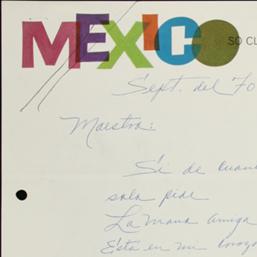 MEXICO SO CL
Sept. del 70
Maestra:
Si de cuan
sola pide
La mano amiga
Esta en mi coraz